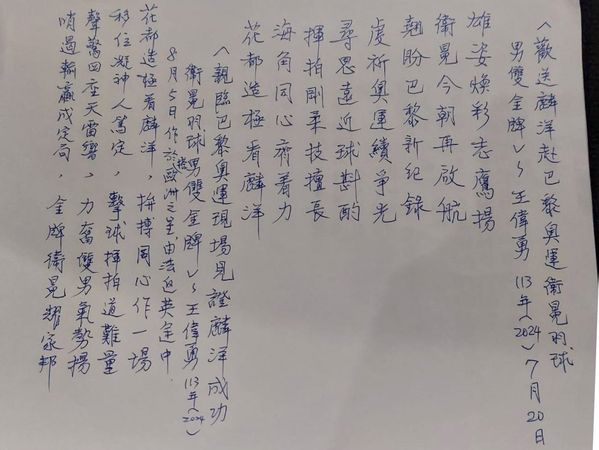 〈歡送麟洋赴巴黎奧運衛冕羽球
男雙金牌〉~王偉勇 113年(2024) 7月20日
雄姿煥彩志鷹揚
衛冕今朝再啟航
翹盼巴黎新紀錄
虔祈奧運續爭光
尋思遠近球斟酌
揮拍剛柔技擅長
海角同心齊着力
花都造極看麟洋
〈親臨巴黎奧運現場見證麟洋成功
衛冕羽球男雙金牌〉~王偉勇 113年(2024)
8月5日作於歐洲之 由法 英途中.
花都造極看麟洋,拚搏同心作一場
移位凝神人篤定,擊球揮拍道難量
聲驚四座天雷響,力奮雙男氣勢揚
哨過輸贏成定局,金牌衛冕耀家邦